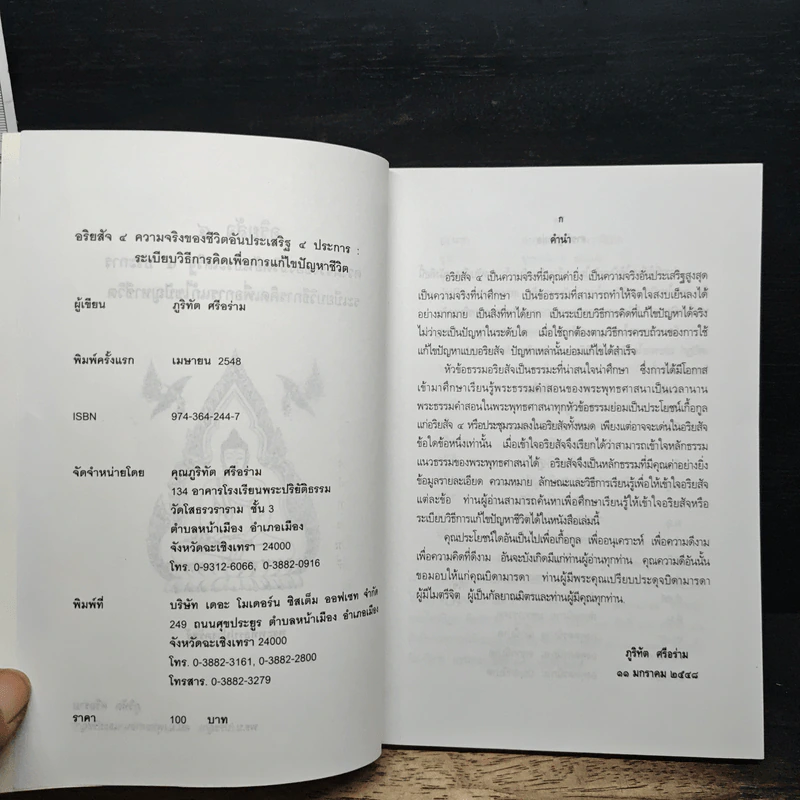 อริยสัจ ๔ ความจริงของชีวิตอันประเสริฐ ๔ ประการ :
ระเบียบวิธีการคิดเพื่อการแก้ไขปัญหาชีวิต
ผู้เขียน ภูริทัต ศรีอร่าม
พิมพ์ครั้งแรก เมษายน 2548
ISBN 974-364-244-7
จัดจำหน่ายโดย คุณภูริทัต ศรีอร่าม
134 อาคารโรงเรียนพระปริยัติธรรม
วัดโสธรวราราม ชั้น 3
ตำบลหน้าเมือง อำเภอเมือง
จังหวัดฉะเชิงเทรา 24000
โทร. 0-9312-6066, 0-3882-0916
พิมพ์ที่ บริษัท เดอะ โมเดอร์น ซิสเต็ม ออฟเซท จำกัด
249 ถนนศุขประยูร ตำบลหน้าเมือง อำเภอเมือง
จังหวัดฉะเชิงเทรา 24000
โทร. 0-3882-3161, 0-3882-2800
โทรสาร. 0-3882-3279
ราคา 100 บาท
ก
คำนำ
อริยสัจ ๔ เป็นความจริงที่มีคุณค่ายิ่ง เป็นความจริงอันประเสริฐสูงสุด
เป็นความจริงที่น่าศึกษา เป็นข้อธรรมที่สามารถทำให้จิตใจสงบเย็นลงได้
อย่างมากมาย เป็นสิ่งที่หาได้ยาก เป็นระเบียบวิธีการคิดที่แก้ไขปัญหาได้จริง
ไม่ว่าจะเป็นปัญหาในระดับใด เมื่อใช้ถูกต้องตามวิธีการครบถ้วนของการใช้
แก้ไขปัญหาแบบอริยสัจ ปัญหาเหล่านั้นย่อมแก้ไขได้สำเร็จ
หัวข้อธรรมอริยสัจเป็นธรรมะที่น่าสนใจน่าศึกษา ซึ่งการได้มีโอกาส
เข้ามาศึกษาเรียนรู้พระธรรมคำสอนของพระพุทธศาสนาเป็นเวลานาน
พระธรรมคำสอนในพระพุทธศาสนาทุกหัวข้อธรรมย่อมเป็นประโยชน์เกื้อกูล
แก่อริยสัจ ๔ หรือประชุมรวมลงในอริยสัจทั้งหมด เพียงแต่อาจจะเด่นในอริยสัจ
ข้อใดข้อหนึ่งเท่านั้น เมื่อเข้าใจอริยสัจจึงเรียกได้ว่าสามารถเข้าใจหลักธรรม
แนวธรรมของพระพุทธศาสนาได้ อริยสัจจึงเป็นหลักธรรมที่มีคุณค่าอย่างยิ่ง
ข้อมูลรายละเอียด ความหมาย ลักษณะและวิธีการเรียนรู้เพื่อให้เข้าใจอริยสัจ
แต่ละข้อ ท่านผู้อ่านสามารถค้นหาเพื่อศึกษาเรียนรู้ให้เข้าใจอริยสัจหรือ
ระเบียบวิธีการแก้ไขปัญหาชีวิตได้ในหนังสือเล่มนี้
คุณประโยชน์ใดอันเป็นไปเพื่อเกื้อกูล เพื่ออนุเคราะห์ เพื่อความดีงาม
เพื่อความคิดที่ดีงาม อันจะบังเกิดมีแก่ท่านผู้อ่านทุกท่าน คุณความดีอันนั้น
ขอมอบให้แก่คุณบิดามารดา ท่านผู้มีพระคุณเปรียบประดุจบิดามารดา
ผู้มีไมตรีจิต ผู้เป็นกัลยาณมิตรและท่านผู้มีคุณทุกท่าน.
ภูริทัต ศรีอร่าม
๑๑ มกราคม ๒๕๔๘